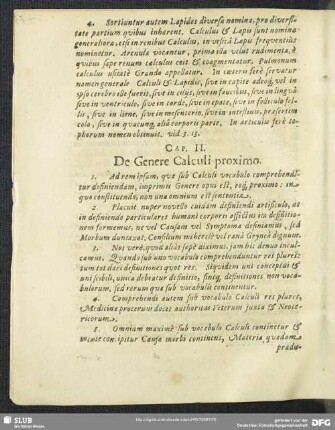 4. Sortiuntur autem Lapides diversa nomina, pro diversi-
tate partium qvibus inhærent. Calculus & Lapis sunt nomina
generaliora, etsi in renibus Calculus, in vesicâ Lapis freqventius
nominetur. Arenulæ vocantur, prima illa velut rudimenta, è
qvibus sæpe renum calculi coit & coagmentatur. Pulmonum
calculus usitatè Grando appellatur. In cæteris ferè servatur
nomen generale Calculi & Lapidis, sive in capite adeoq; vel in
ipso cerebro ille fuerit, sive in ciliis, sive in faucibus, sive in lingvâ
sive in ventriculo, sive in corde, sive in epate, sive in folliculo fel-
lis, sive in liene, sive in mesenterio, sive in intestinis, præsertim
colo, sive in qvacunq; aliâ corporis parte. In articulis ferè to-
phorum nomen obtinuit. vid. 3. 15.
CAP. II.
De Genere Calculi proximo.
1. Ad rem ipsam, qvæ sub Calculi vocabulo comprehendi-
tur definiendam, imprimis Genere opus est, eoq; proximo: in
quo constituendo, non una omnium est sententia.
2. Placuit nuper novello cuidam definiendi artifici, ut
in definiendo particulares humani corporis affectus ita definitio-
nem formemus, ne vel Causam vel Symptoma definiamus, sed
Morbum duntaxat. Consilium meherclè vel ranâ Gryneâ dignum.
3. Nos verò, qvod aliàs sæpè diximus, jam bis denuò incul-
camus. Qvando sub uno vocabulo comprehenduntur res plures:
tum tot dari definitiones qvot res. Siqvidem uni conceptui &
uni scibili, unica debeatur definitio, sintq; definitiones non voca-
bulorum, sed rerum qvæ sub vocabulis continentur.
4. Comprehendi autem sub vocabulo Calculi res plures,
Medicinæ proceres nos docet authoritas Veterum juxta & Neote-
ricorum.
5. Omnium maximè sub vocabulo Calculi continetur &
mente concipitur Causa morbi continens, Materia qvædam
prædu-
SLUB
Wir führen Wissen.
gefördert von der
Deutschen Forschungsgemeinschaft
DFG